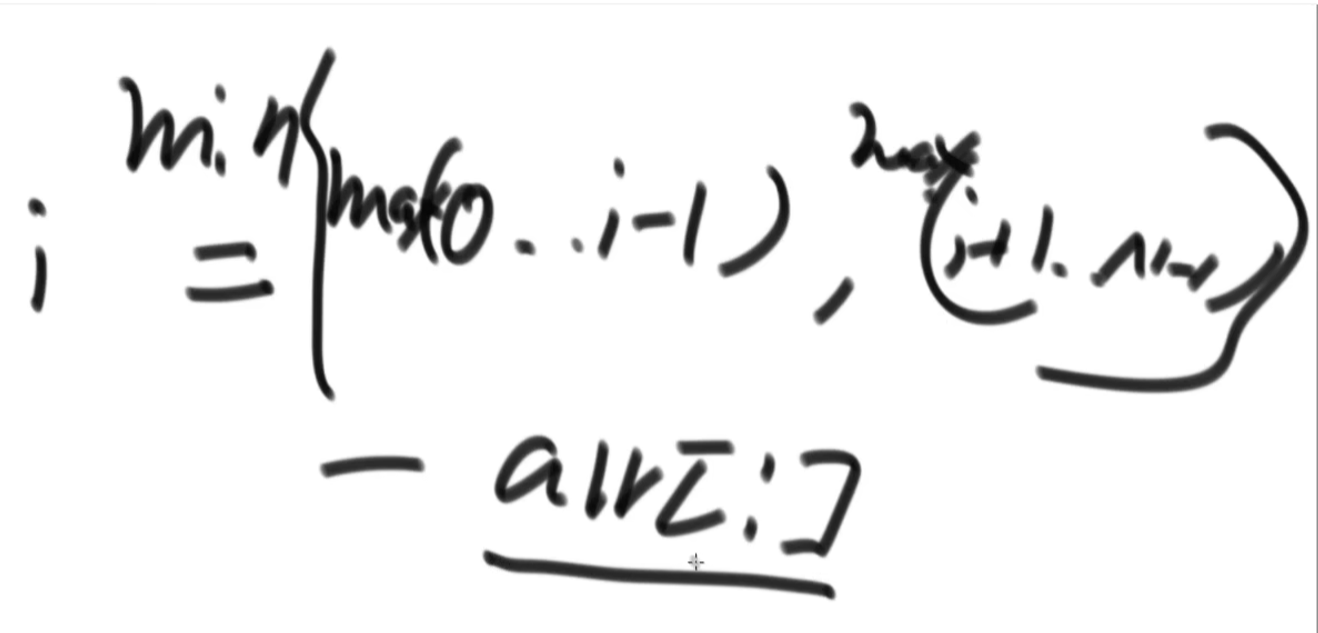 i = min{max(0..i-1), max(i+1..N-1)}
- arr[i]